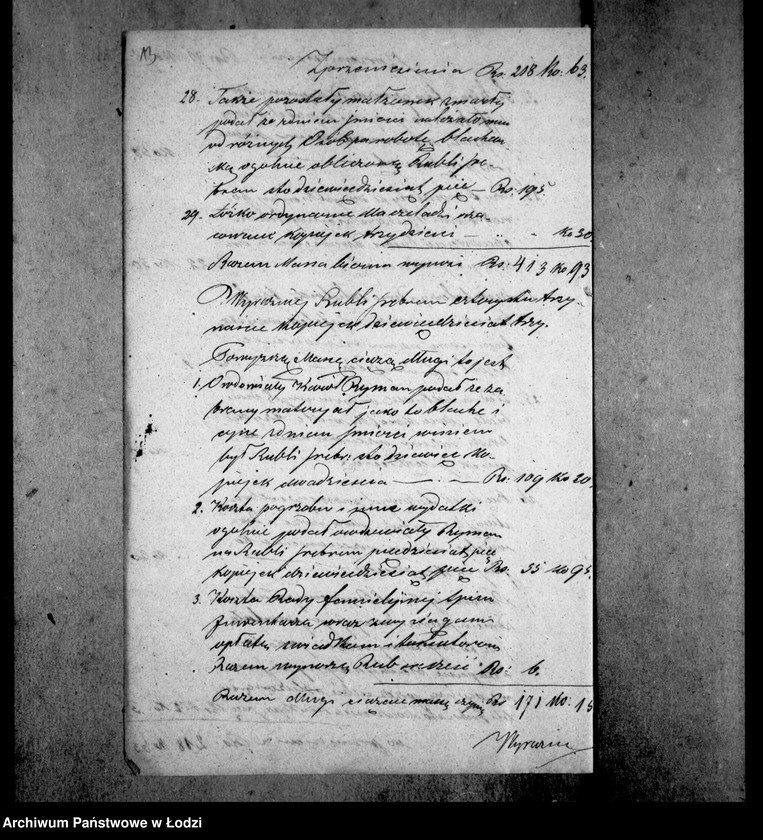 Z przeniesienia Rs. 218 Ko: 63.
28. Także pozostały małżonek zmarłej
podał że z dniem śmierci należało mu
od różnych Osób za robotę blachar
ską ogólnie obliczoną Rubli sre-
brem sto dziewiedziesiąt pięć — Rs. 195
29. Łóżko ordynaryjne dla czeladzi sza
cowane kopiejek trzydzieści — " - Ko 30.
Razem Massa bierna wynosi Rs. 413 Ko 93
Wyraźniej Rubli srebrem czterysta trzy
naście kopiejek dziewiedziesiąt trzy.
Powyższą Massę ciążą długi to jest
1. Owdowiały Karol Ryman podał że za
brany materyał jako to blachę i
cynę z dniem śmierci winien
był Rubli srebr. sto dziewięć ko-
piejek dwadzieścia — . — Rs. 109 Ko 20.
2. Koszta pogrzebu i inne wydatki
ogólnie podał owdowiały Ryman
na Rubli srebrem piędziesiąt pięć
kopiejek dziewiedziesiąt pięć Rs. 55 Ko 95.
3. Koszta Rady familijnej spisu
Inwentarza wraz z wyciągami
opłatą świadkom i taxatorom
Razem wynoszą Rub sześć Rs: 6.
Razem długi ciążące massę czynią Rs 171 Ko: 15
Wyraźnie
Archiwum Państwowe w Łodzi